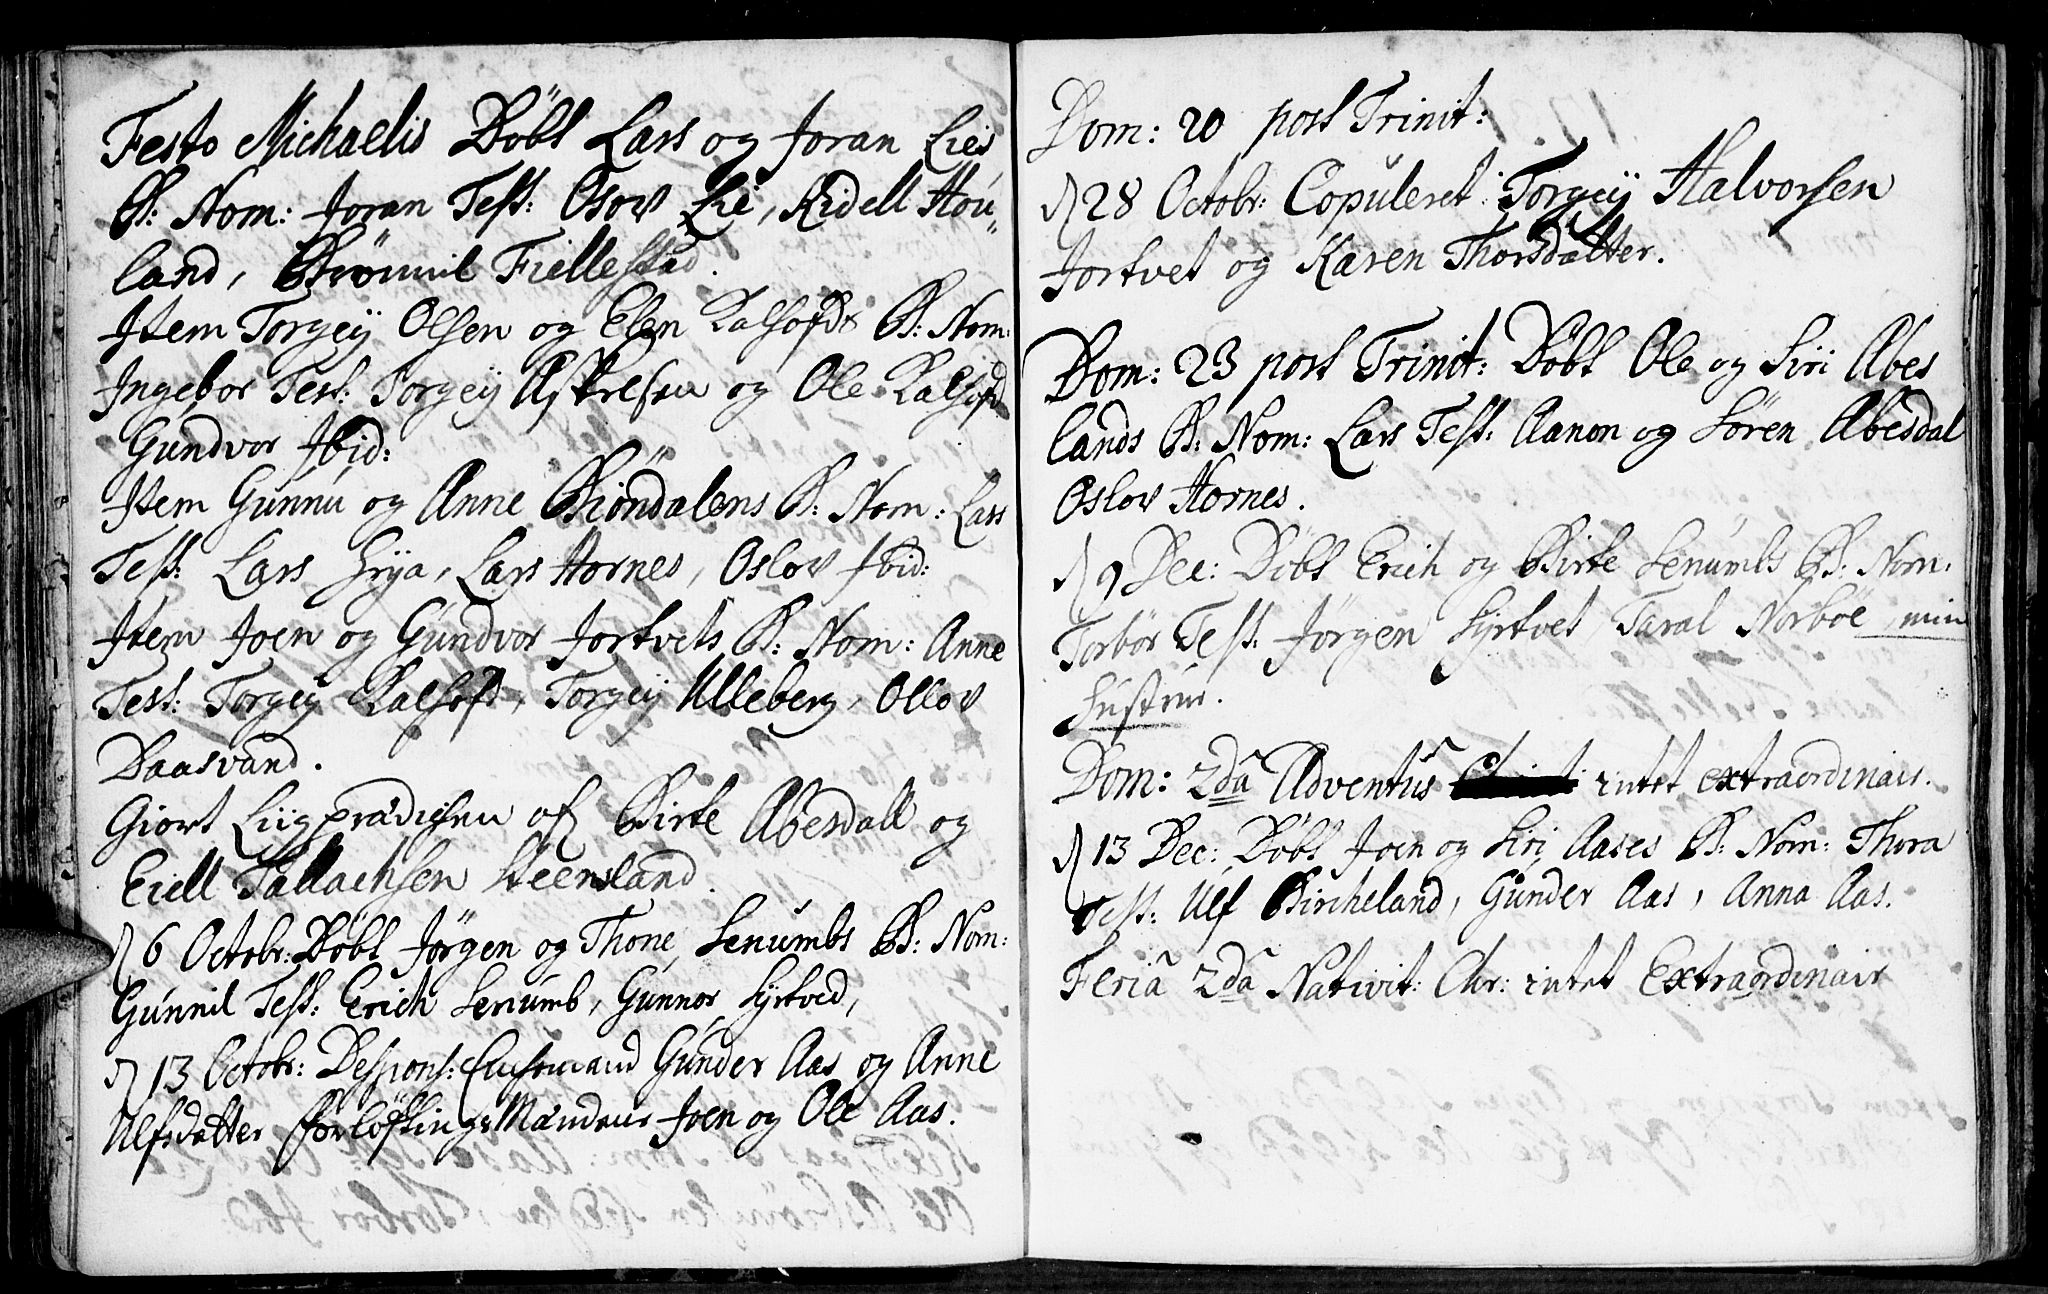 Festo Michaelis Döbt Lars og Joran Lies
B: Nom: Joran Test: Osov Lie, Kidell Hou„
land, Brönnil Fiellestad.
Item Torgey Olsen og Elen Kalhofds B: Nom:
Ingebor Test: Torgey Aspelsen og Ole Kalhofd
Gundvor Ibid:
Item Gunnu og Anne Biöndalens B: Nom: Lars
Test: Lars Hornes, Oslov Ibid:
Item Joen og Gundvor Jortvets B: Nom: Anne
Test: Torgey Kalhofd, Torgey Ulleberg, Ollov
Daasvand.
Giort Liigprædichen af Birte Abesdall og
Eiell Tallachsen Steensland.
D 6 Octobr: Döbt Jörgen og Thone Senumbs B: Nom:
Gunnil Test: Erich Senumb, Gunnor Syrtved,
D 13 Octobr: Despons: Gunder Aas og Anne
Ulfsdatter forlöftings Mændene Joen og Ole Aas.
Dom: 20 post Trinit:
D 28 Octobr: Copuleret Torgey Halvorsen
Jortvet og Karen Thorsdatter.
Dom: 23 post Trinit: Döbt Ole og Siri Abes
lands B: Nom: Lars Test: Aanon og Sören Abesdal
Oslov Hornes.
D 9 Dec: Döbt Erich og Birte Senumbs B: Nom:
Torbör Test: Jörgen Syrtvet, Taral Norböe, min
Hustrue.
Dom: 2da Adventus intet extraordinair.
D 13 Dec: Döbt Joen og Siri Aases B: Nom: Thora
Test: Ulf Bircheland, Gunder Aas, Anna Aas.
Feria 2da Nativit: Chr: intet Extraordinair